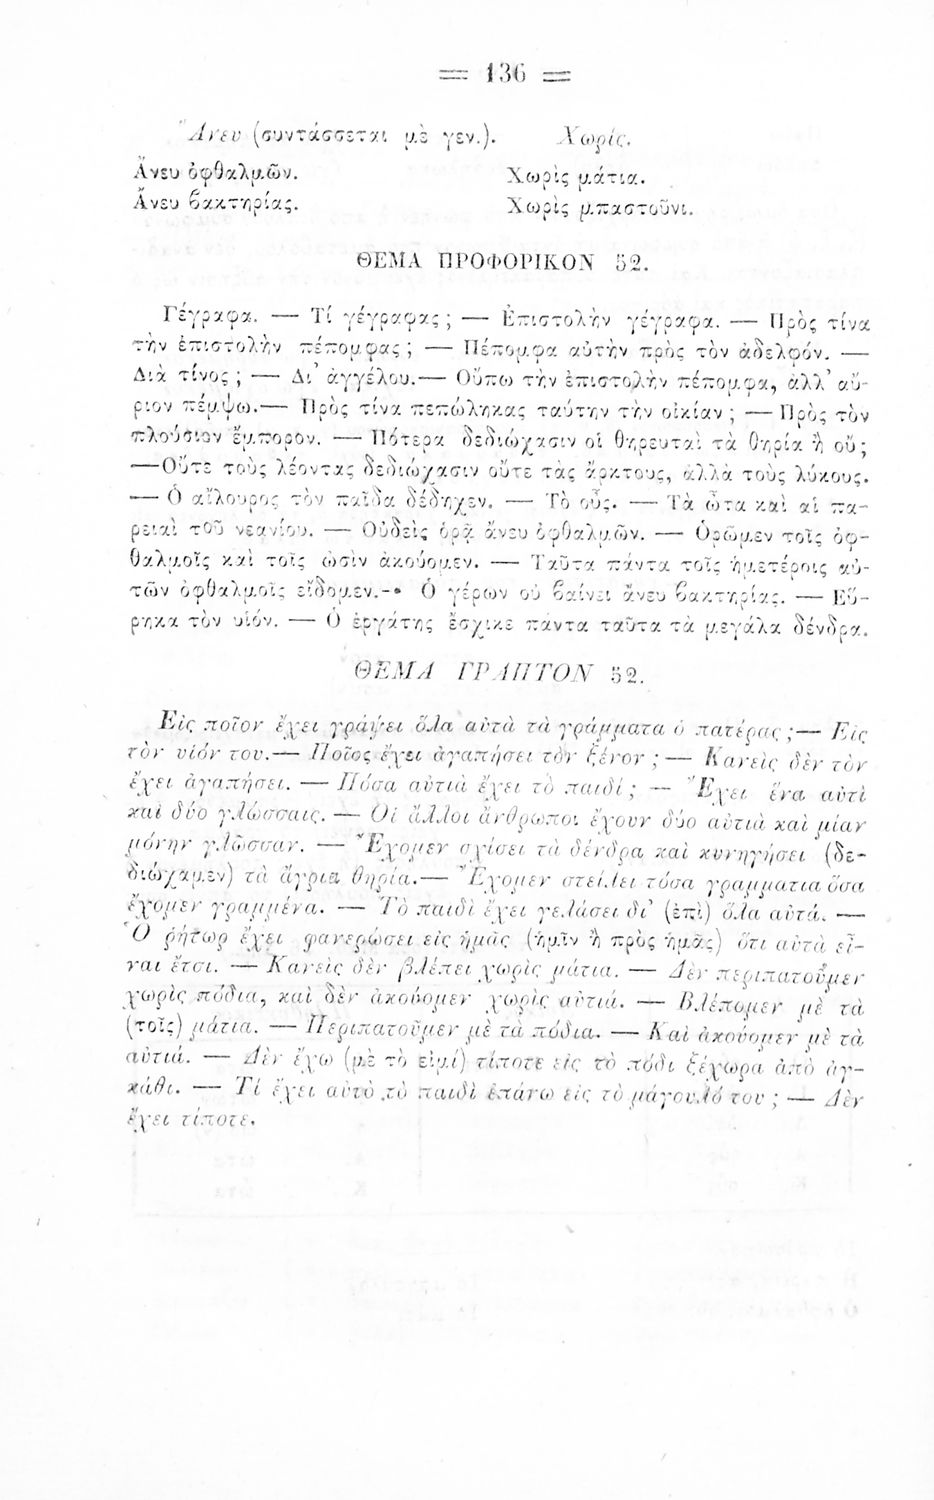 = 136 =
Ἄνευ (συντάσσεται μὲ γεν.). Χωρίς.
Ἄνευ ὀφθαλμῶν. Χωρὶς μάτια.
Ἄνευ βακτηρίας. Χωρὶς μπαστοῦνι.
ΘΕΜΑ ΠΡΟΦΟΡΙΚΟΝ 52.
Γέγραφα. — Τί γέγραφας; — Ἐπιστολὴν γέγραφα. — Πρὸς τίνα
τὴν ἐπιστολὴν πέπομφας; — Πέπομφα αὐτὴν πρὸς τὸν ἀδελφόν. —
Διὰ τίνος; — Δι’ ἀγγέλου.— Οὔπω τὴν ἐπιστολὴν πέπομφα, ἀλλ’ αὔ-
ριον πέμψω.— Πρὸς τίνα πεπώληκας ταύτην τὴν οἰκίαν; — Πρὸς τὸν
πλούσιον ἔμπορον. — Πότερα δεδιώχασιν οἱ θηρευταὶ τὰ θηρία ἢ οὔ;
—Οὔτε τοὺς λέοντας δεδιώχασιν οὔτε τὰς ἄρκτους, ἀλλὰ τοὺς λύκους.
— Ὁ αἴλουρος τὸν παῖδα δέδηχεν. — Τὸ οὖς. — Τὰ ὦτα καὶ αἱ πα-
ρειαὶ τοῦ νεανίου. — Οὐδεὶς ὁρᾷ ἄνευ ὀφθαλμῶν. — Ὁρῶμεν τοῖς ὀφ-
θαλμοῖς καὶ τοῖς ὠσὶν ἀκούομεν. — Ταῦτα πάντα τοῖς ἡμετέροις αὐ-
τῶν ὀφθαλμοῖς εἴδομεν.-• Ὁ γέρων οὐ βαίνει ἄνευ βακτηρίας. — Εὕ-
ρηκα τὸν υἱόν. — Ὁ ἐργάτης ἔσχικε πάντα ταῦτα τὰ μεγάλα δένδρα.
ΘΕΜΑ ΓΡΑΠΤΟΝ 52.
Εἰς ποῖον ἔχει γράψει ὅλα αὐτὰ τὰ γράμματα ὁ πατέρας;— Εἰς
τὸν υἱόν του.— Ποῖος ἔχει ἀγαπήσει τὸν ξένον; — Κανεὶς δὲν τὸν
ἔχει ἀγαπήσει. — Πόσα αὐτιὰ ἔχει τὸ παιδί; — Ἔχει ἕνα αὐτὶ
καὶ δύο γλώσσαις. — Οἱ ἄλλοι ἄνθρωποι ἔχουν δύο αὐτιὰ καὶ μίαν
μόνην γλῶσσαν. — Ἔχομεν σχίσει τὰ δένδρα καὶ κυνηγήσει (δε-
διώχαμεν) τὰ ἄγρια θηρία.— Ἔχομεν στείλει τόσα γραμματια ὅσα
ἔχομεν γραμμένα. — Τὸ παιδὶ ἔχει γελάσει δι’ (ἐπὶ) ὅλα αὐτά. —
Ὁ ῥήτωρ ἔχει φανερώσει εἰς ἡμᾶς (ἡμῖν ἢ πρὸς ἡμᾶς) ὅτι αὐτὰ εἶ-
ναι ἔτσι. — Κανεὶς δὲν βλέπει χωρὶς μάτια. — Δὲν περιπατοῦμεν
χωρὶς πόδια, καὶ δὲν ἀκούομεν χωρὶς αὐτιά. — Βλέπομεν μὲ τὰ
(τοῖς) μάτια. — Περιπατοῦμεν μὲ τὰ πόδια. — Καὶ ἀκούομεν μὲ τὰ
αὐτιά. — Δὲν ἔχω (μὲ τὸ εἰμί) τίποτε εἰς τὸ πόδι ξέχωρα ἀπὸ ἀγ-
κάθι. — Τί ἔχει αὐτὸ τὸ παιδὶ ἐπάνω εἰς τὸ μάγουλό του; — Δὲν
ἔχει τίποτε.